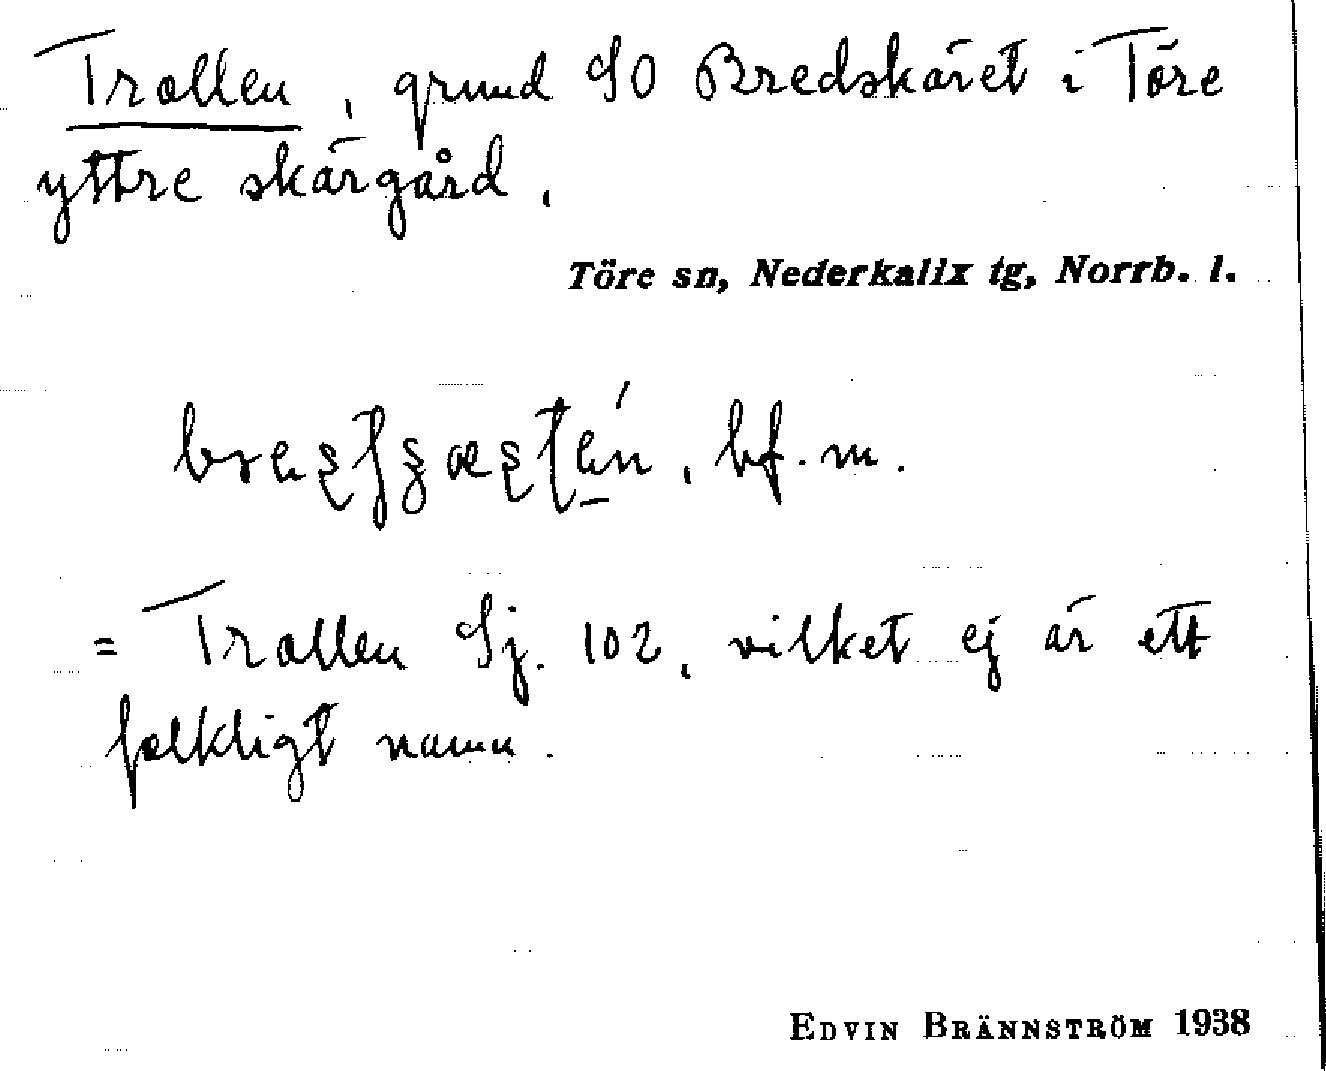 Trollen, grund SO Bredskäret i Töre
yttre skärgård.
Töre sn, Nederkalix tg, Norrb. l.
bf. m.
= Trollen Sj. 102, vilket ej är ett
folkligt namn.
EDVIN BRÄNNSTRÖM 1938